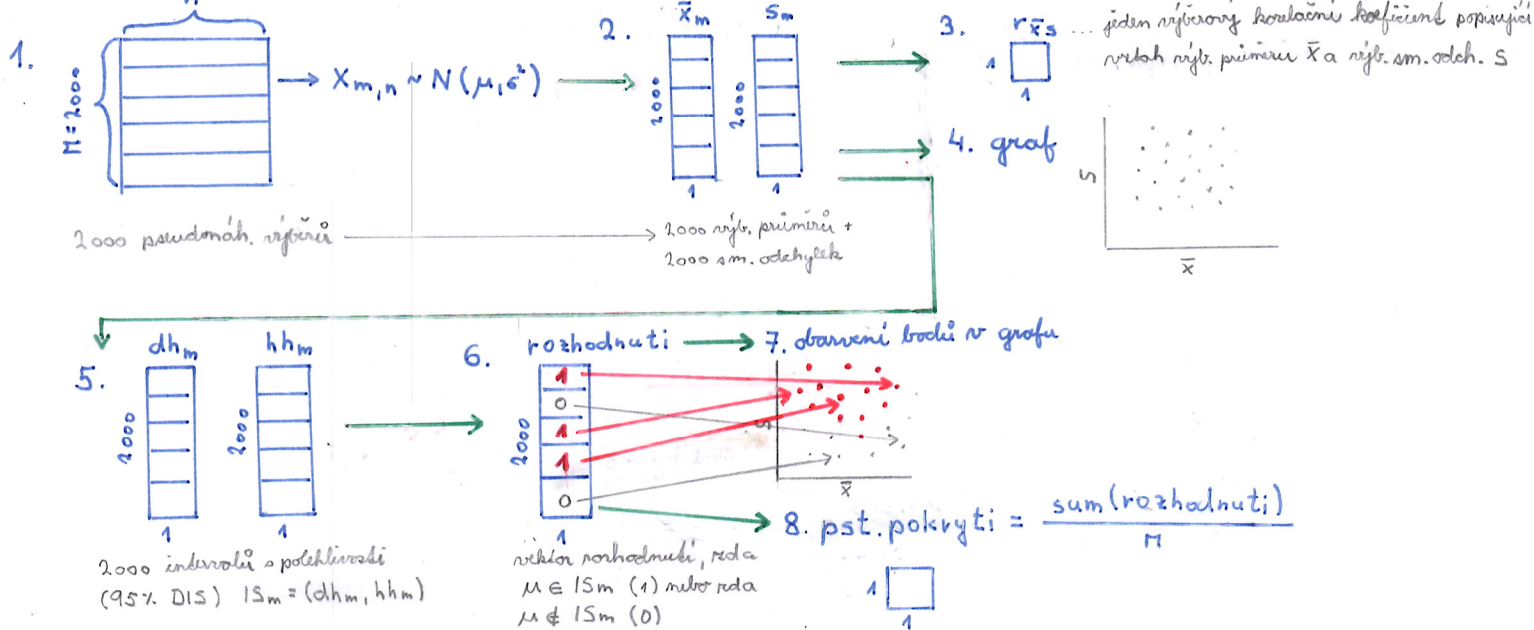 1.
M=2000
X_{m,n} ~ N(μ,σ²)
2000 pseudonáh. výběrů
2.
x̄_m
s_m
2000
2000
1
1
2000 výb. průměrů +
2000 sm. odchylek
3.
r_{x̄s} ... jeden výběrový korelační koeficient popisující
vztah výb. průměru x̄ a výb. sm. odch. s
1
1
4. graf
s
x̄
5.
dh_m
hh_m
2000
2000
1
1
2000 intervalů spolehlivosti
(95% DIS) IS_m = (dh_m, hh_m)
6.
rozhodnuti
1
0
1
1
0
2000
1
vektor rozhodnutí, zda
μ ∈ IS_m (1) nebo zda
μ ∉ IS_m (0)
7. obarvení bodů v grafu
s
x̄
8. pst. pokryti = sum(rozhodnuti)
M
1
1